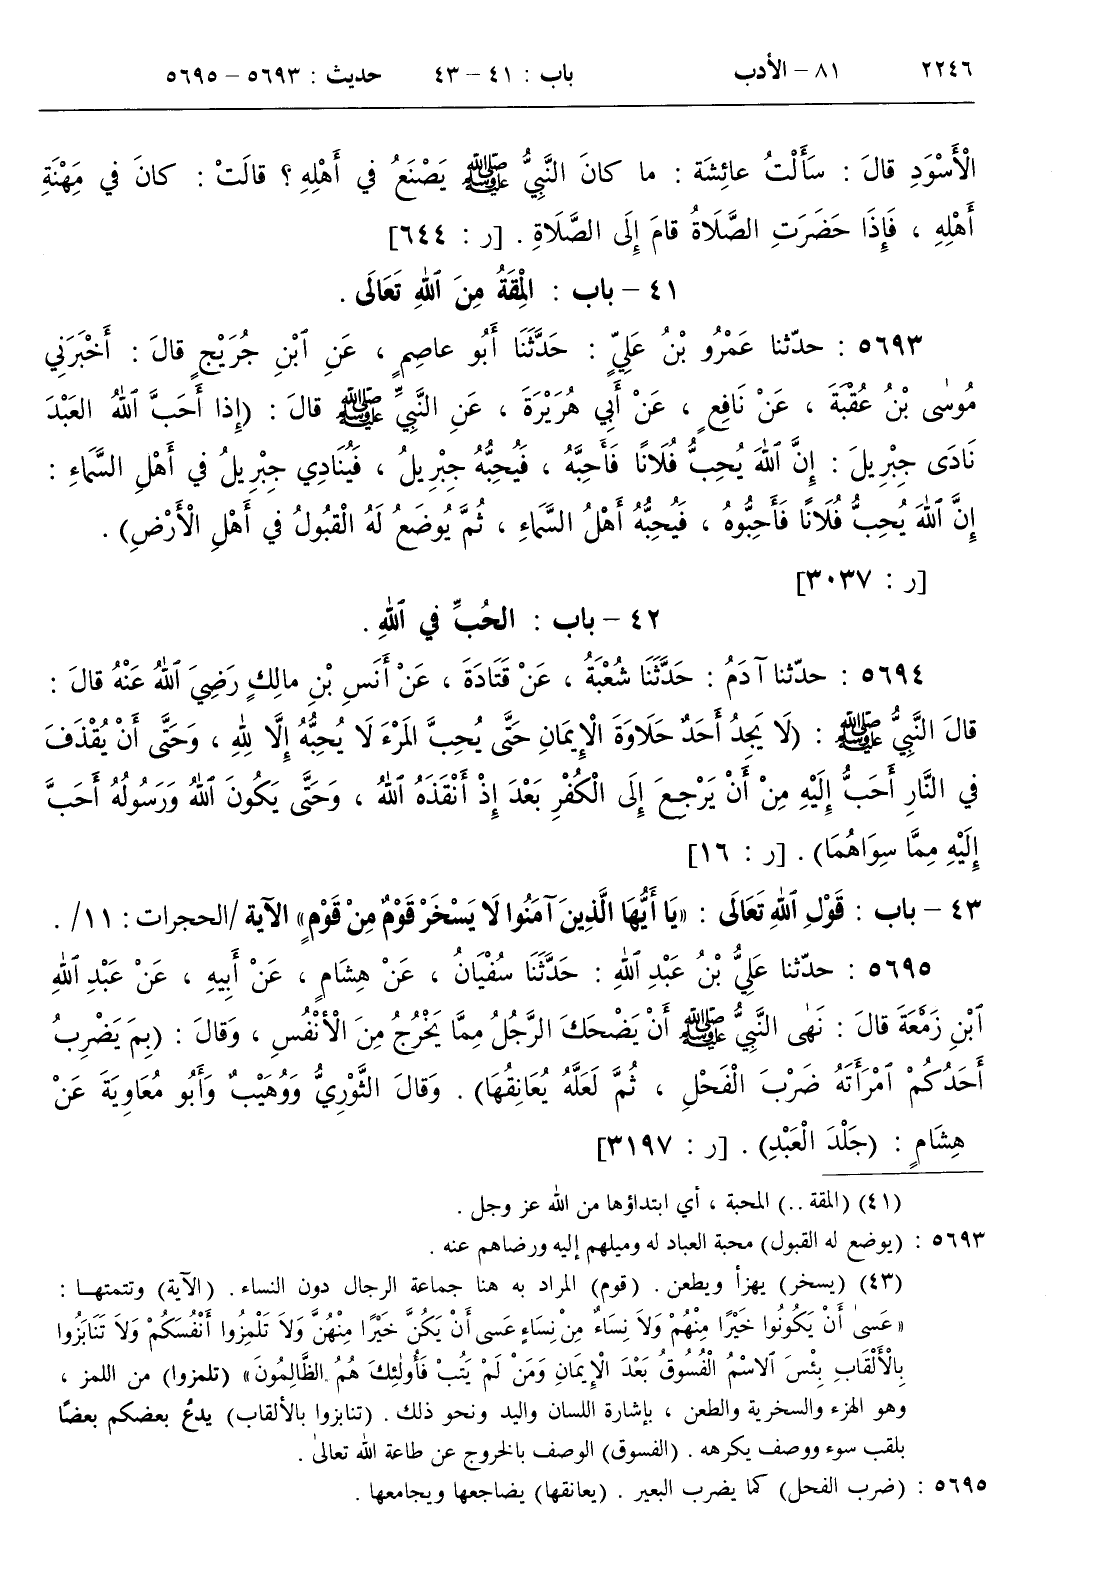 ٢٢٤٦ ٨١ – الأدب باب : ٤١ – ٤٣ حديث : ٥٦٩٣ – ٥٦٩٥
الْأَسْوَدِ قالَ : سَأَلْتُ عائِشَةَ : ما كانَ النَّبِيُّ ﷺ يَصْنَعُ في أَهْلِهِ ؟ قالَتْ : كانَ في مِهْنَةِ
أَهْلِهِ ، فَإِذَا حَضَرَتِ الصَّلَاةُ قامَ إِلَى الصَّلَاةِ . [ر : ٦٤٤]
٤١ – باب : الْمِقَةُ مِنَ ٱللهِ تَعَالَى .
٥٦٩٣ : حدّثنا عَمْرُو بْنُ عَلِيٍّ : حَدَّثَنَا أَبُو عاصِمٍ ، عَنِ ٱبْنِ جُرَيْجٍ قالَ : أَخْبَرَنِي
مُوسٰى بْنُ عُقْبَةَ ، عَنْ نَافِعٍ ، عَنْ أَبِي هُرَيْرَةَ ، عَنِ النَّبِيِّ ﷺ قالَ : (إِذَا أَحَبَّ ٱللهُ الْعَبْدَ
نَادَى جِبْرِيلَ : إِنَّ ٱللهَ يُحِبُّ فُلَانًا فَأَحِبَّهُ ، فَيُحِبُّهُ جِبْرِيلُ ، فَيُنَادِي جِبْرِيلُ في أَهْلِ السَّمَاءِ :
إِنَّ ٱللهَ يُحِبُّ فُلَانًا فَأَحِبُّوهُ ، فَيُحِبُّهُ أَهْلُ السَّمَاءِ ، ثُمَّ يُوضَعُ لَهُ الْقَبُولُ في أَهْلِ الْأَرْضِ) .
[ر : ٣٠٣٧]
٤٢ – باب : الحُبِّ في ٱللهِ .
٥٦٩٤ : حدّثنا آدَمُ : حَدَّثَنَا شُعْبَةُ ، عَنْ قَتَادَةَ ، عَنْ أَنَسِ بْنِ مالِكٍ رَضِيَ ٱللهُ عَنْهُ قالَ :
قالَ النَّبِيُّ ﷺ : (لَا يَجِدُ أَحَدٌ حَلَاوَةَ الْإِيمَانِ حَتَّى يُحِبَّ المَرْءَ لَا يُحِبُّهُ إِلَّا لِلهِ ، وَحَتَّى أَنْ يُقْذَفَ
في النَّارِ أَحَبُّ إِلَيْهِ مِنْ أَنْ يَرْجِعَ إِلَى الْكُفْرِ بَعْدَ إِذْ أَنْقَذَهُ ٱللهُ ، وَحَتَّى يَكُونَ ٱللهُ وَرَسُولُهُ أَحَبَّ
إِلَيْهِ مِمَّا سِوَاهُمَا) . [ر : ١٦]
٤٣ – باب : قَوْلِ ٱللهِ تَعَالَى : «يَا أَيُّهَا الَّذِينَ آمَنُوا لَا يَسْخَرْ قَوْمٌ مِنْ قَوْمٍ» الآيَة /الحجرات : ١١/ .
٥٦٩٥ : حدّثنا عَلِيُّ بْنُ عَبْدِ ٱللهِ : حَدَّثَنَا سُفْيَانُ ، عَنْ هِشَامٍ ، عَنْ أَبِيهِ ، عَنْ عَبْدِ ٱللهِ
ٱبْنِ زَمْعَةَ قالَ : نَهٰى النَّبِيُّ ﷺ أَنْ يَضْحَكَ الرَّجُلُ مِمَّا يَخْرُجُ مِنَ الْأَنْفُسِ ، وَقالَ : (بِمَ يَضْرِبُ
أَحَدُكُمْ ٱمْرَأَتَهُ ضَرْبَ الْفَحْلِ ، ثُمَّ لَعَلَّهُ يُعَانِقُهَا) . وَقالَ الثَّوْرِيُّ وَوُهَيْبٌ وَأَبُو مُعَاوِيَةَ عَنْ
هِشَامٍ : (جَلْدَ الْعَبْدِ) . [ر : ٣١٩٧]
(٤١) (المقة ..) المحبة ، أي ابتداؤها من الله عز وجل .
٥٦٩٣ : (يوضع له القبول) محبة العباد له وميلهم إليه ورضاهم عنه .
(٤٣) (يسخر) يهزأ ويطعن . (قوم) المراد به هنا جماعة الرجال دون النساء . (الآية) وتتمتهـا :
«عَسىٰ أَنْ يَكُونُوا خَيْرًا مِنْهُمْ وَلَا نِسَاءٌ مِنْ نِسَاءٍ عَسى أَنْ يَكُنَّ خَيْرًا مِنْهُنَّ وَلَا تَلْمِزُوا أَنْفُسَكُمْ وَلَا تَنَابَزُوا
بِالْأَلْقَابِ بِئْسَ ٱلاسْمُ الْفُسُوقُ بَعْدَ الْإِيمَانِ وَمَنْ لَمْ يَتُبْ فَأُولٰئِكَ هُمُ الظَّالِمُونَ» (تلمزوا) من اللمز ،
وهو الهزء والسخرية والطعن ، بإشارة اللسان واليد ونحو ذلك . (تنابزوا بالألقاب) يدعُ بعضكم بعضًا
بلقب سوء ووصف يكرهه . (الفسوق) الوصف بالخروج عن طاعة الله تعالىٰ .
٥٦٩٥ : (ضرب الفحل) كما يضرب البعير . (يعانقها) يضاجعها ويجامعها .